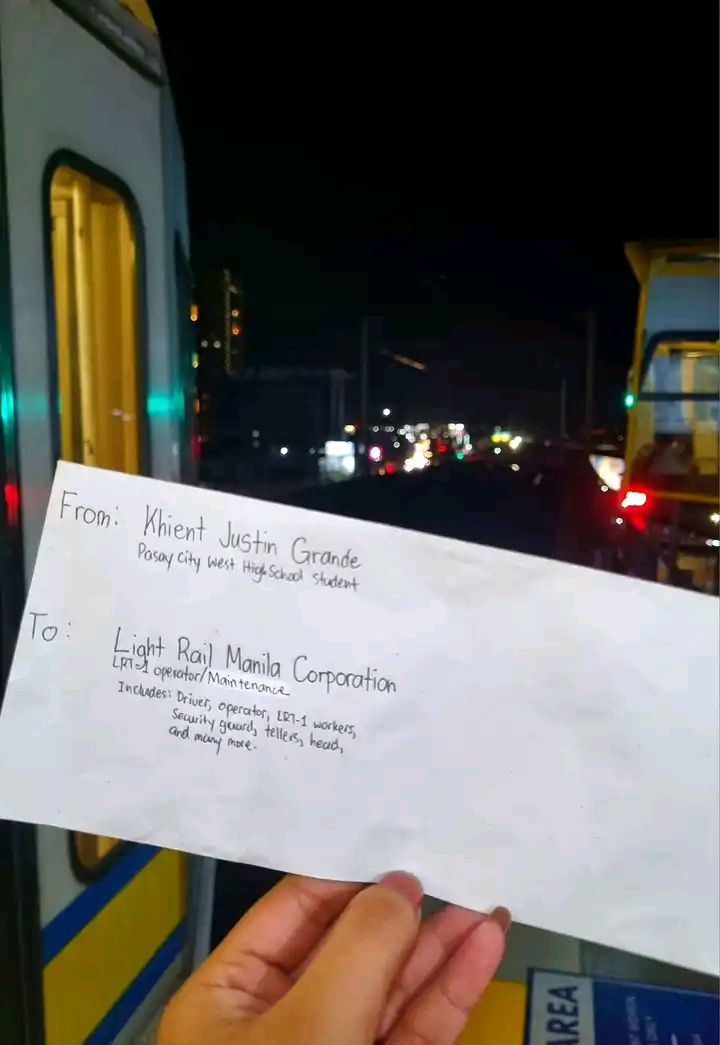 From: Khient Justin Grande
Pasay City West High School Student
To: Light Rail Manila Corporation
LRT-1 operator/Maintenance
Includes: Driver, operator, LRT-1 workers,
Security guard, tellers, head,
and many more.
AREA